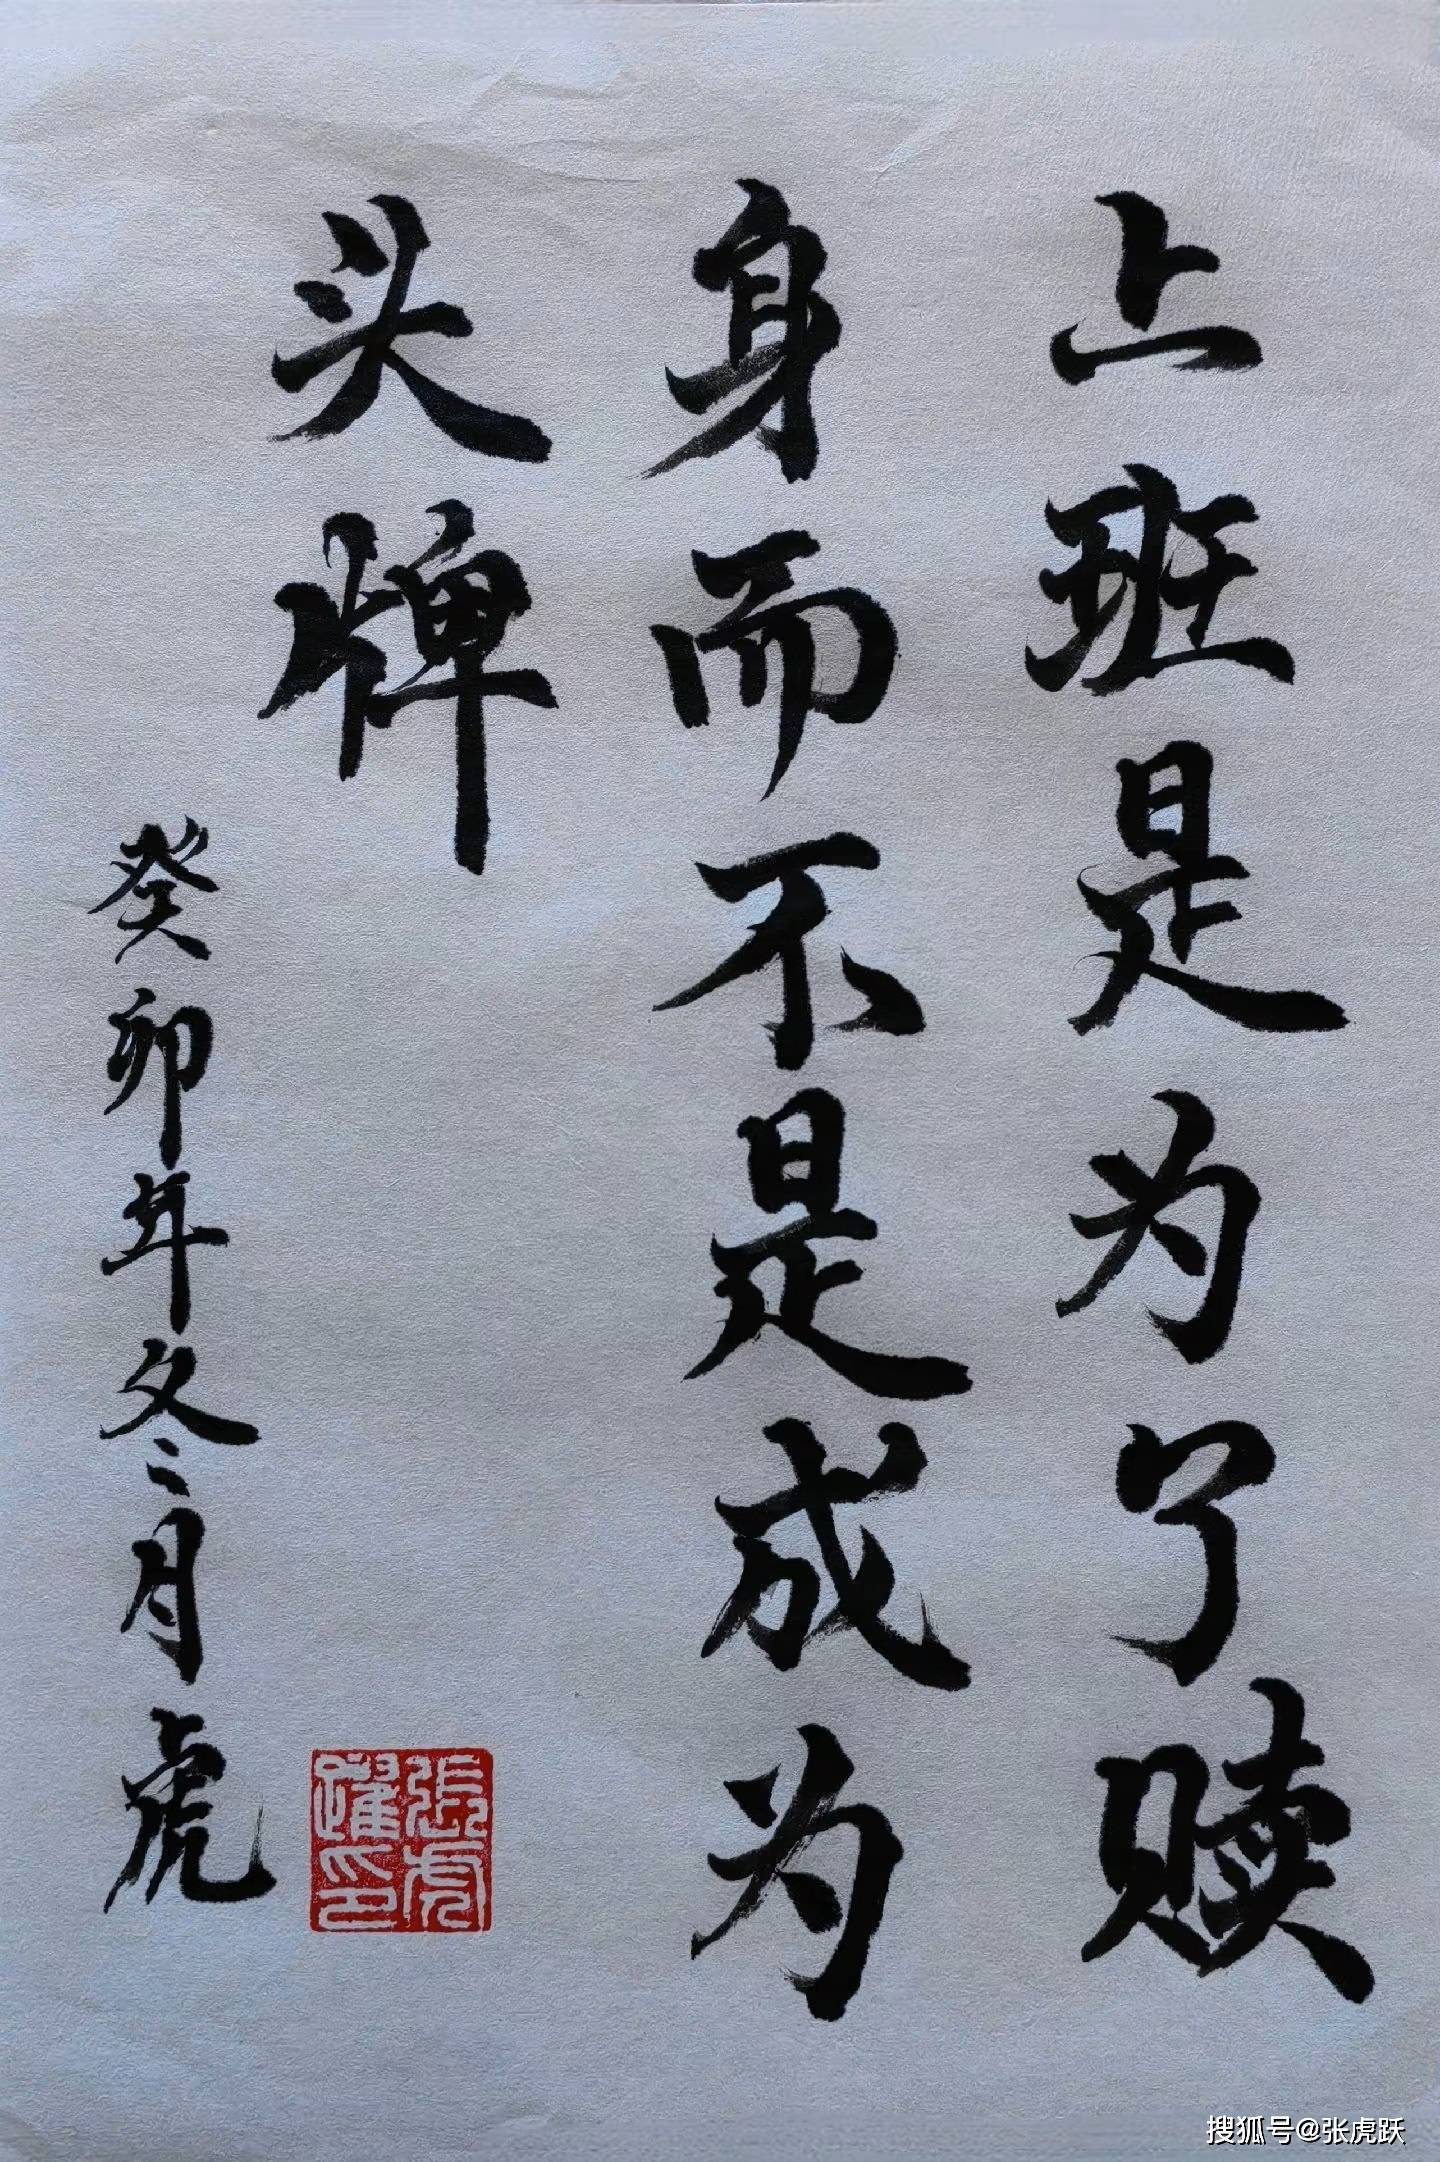 上班是为了赎
身而不是成为
头牌
癸卯年冬月虎
張虎
躍印
搜狐号@张虎跃